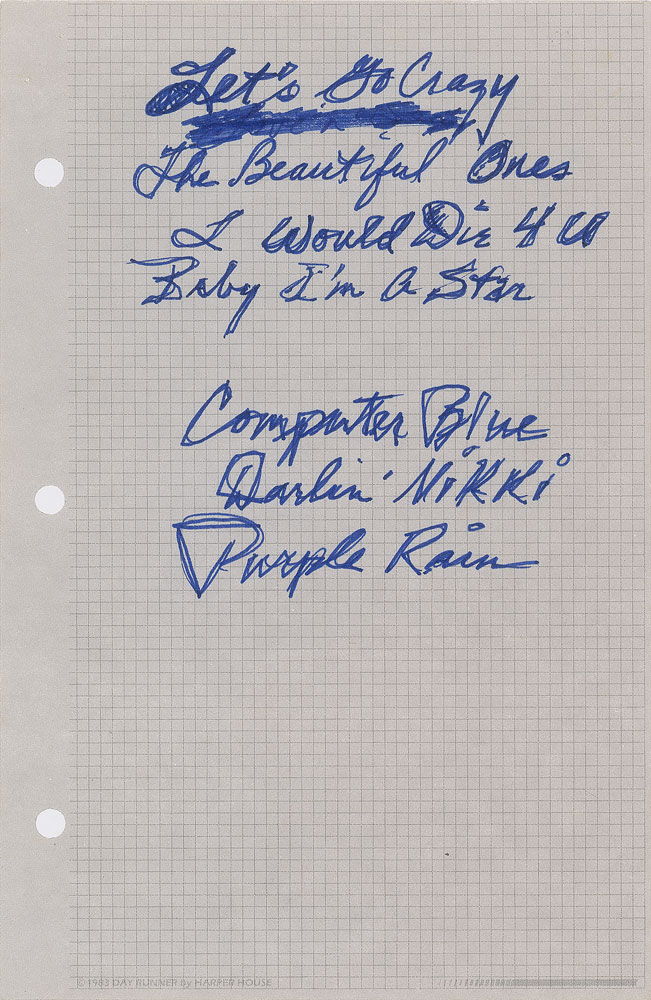 Let's Go Crazy
The Beautiful Ones
I Would Die 4 U
Baby I'm A Star
Computer Blue
Darlin' Nikki
Purple Rain
©1983 DAY RUNNER by HARPER HOUSE